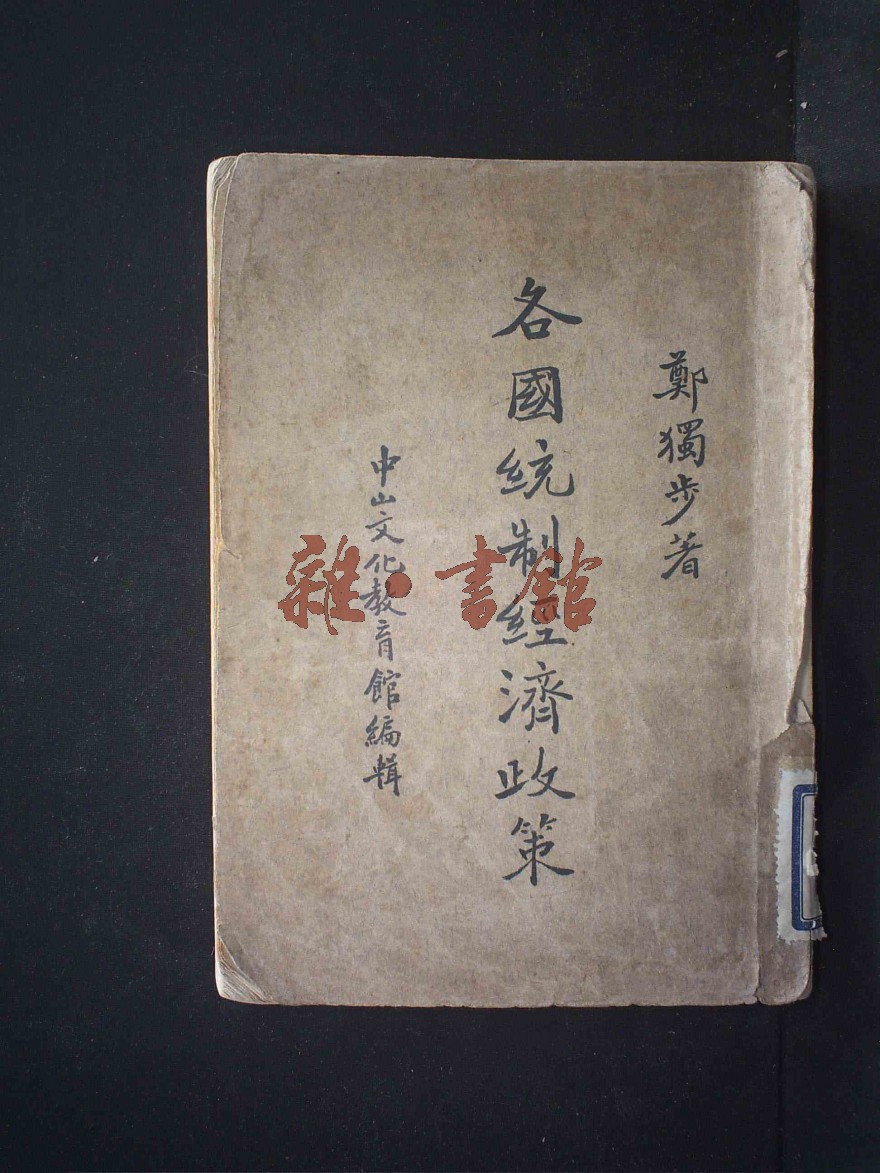 鄭獨步著
各國統制經濟政策
中山文化教育館編輯
雜·書館